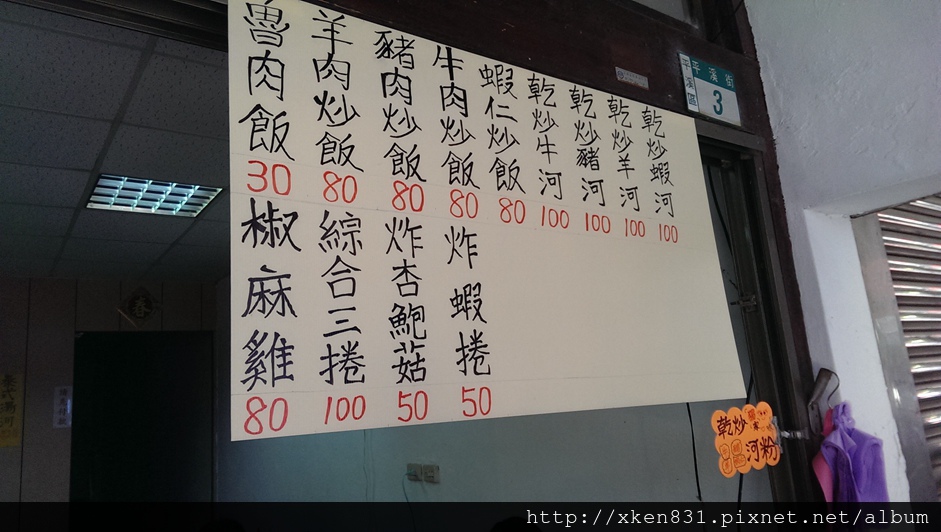 魯肉飯 30
羊肉炒飯 80
豬肉炒飯 80
牛肉炒飯 80
蝦仁炒飯 80
乾炒牛河 100
乾炒豬河 100
乾炒羊河 100
乾炒蝦河 100
椒麻雞 80
綜合三捲 100
炸杏鮑菇 50
炸蝦捲 50
平溪街
平溪區
3
春
乾炒
河粉
http://xken831.pixnet.net/album